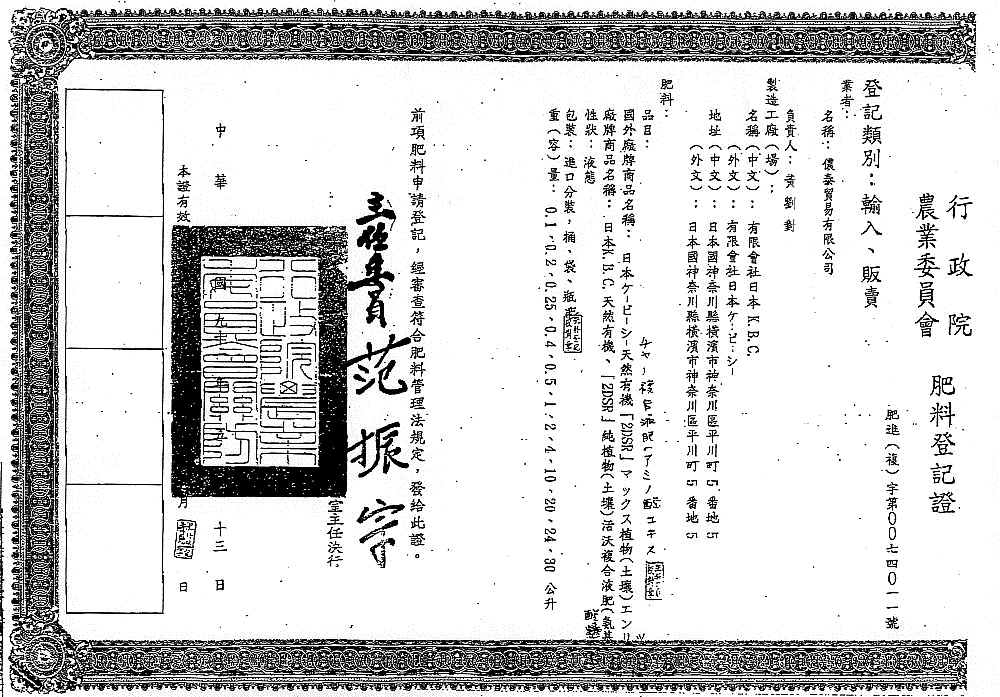 行政院
農業委員會 肥料登記證
肥進(複)字第00七四0一一號
登記類別：輸入、販賣
業者：
名稱：儂泰貿易有限公司
負責人：黃劉對
製造工廠（場）：
名稱（中文）：有限會社日本K.B.C.
（外文）：有限会社日本ケ·ビ·シー
地址（中文）：日本國神奈川縣橫濱市神奈川區平川町 5 番地 5
（外文）：日本國神奈川縣橫濱市神奈川區平川町 5 番地 5
肥料：
品目：
國外廠牌商品名稱：日本ケービーシー天然有機「2DSR」マックス植物(土壤)エンリッ
チャー複合液肥(アミノ酸エキス
廠牌商品名稱：日本K.B.C.天然有機、「2DSR」純植物(土壤)活沃複合液肥(氨基
性狀：液態
包裝：進口分裝，桶、袋、瓶
重(容)量：0.1、0.2、0.25、0.4、0.5、1、2、4、10、20、24、30 公升
前項肥料申請登記，經審查符合肥料管理法規定，發給此證。
主任委員 范振宗
室主任決行
中華國九年五十三日
本證有效月日